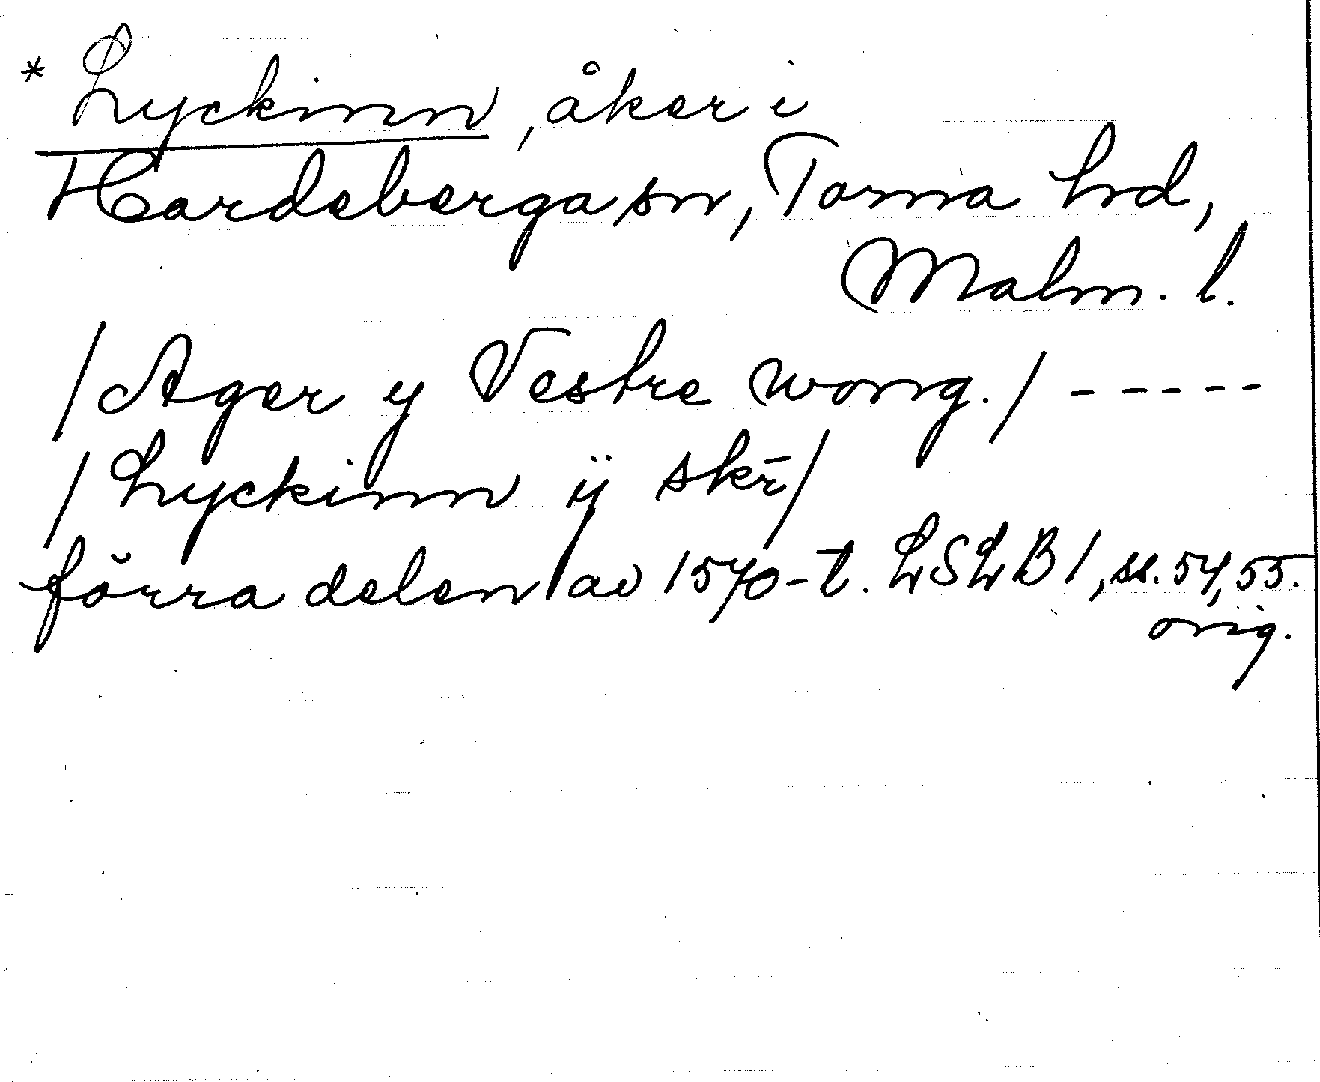 * Lyckinn, åker i
Hardeberga sn, Torna hd,
Malm. l.
/Ager y Vestre wong./ -----
/Lyckinn ÿ skr̄/
förra delen av 1570-t. LSLB 1, ss. 54, 55.
orig.